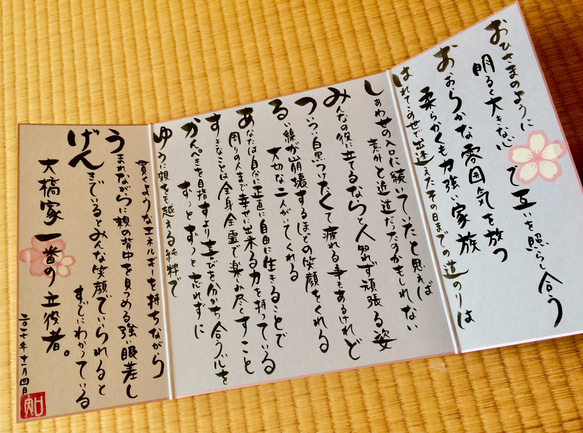 おひさまのように
明るく大きな心で互いを照らし合う
おおらかな雰囲気を放つ
柔らかくも力強い家族
はれてこの世で出逢えたその日までの道のりは
しあわせの入口に続いていたと思えば
案外と近道だったのかもしれない
みんなの役に立てるならと人知れず頑張る姿
ついつい白黒つけたくて疲れる事もあるけれど
るい線が崩壊するほどの笑顔をくれる
大切な二人がいてくれる
あなたは自分に正直に自由に生きることで
周りの人まで幸せに出来る力を持っている
すきなことは全身全霊で楽しみ尽くすこと
かんぺきを目指すより喜びを分かち合う
ずっとずっと忘れずに
ゆうに親をも越える純粋で
貫くようなエネルギーを持ちながら
うまれながらに親の背中を見つめる強い眼差し
げんきでいるとみんな笑顔でいられると
すでにわかっている
大橋家一番の立役者。
月四日
如